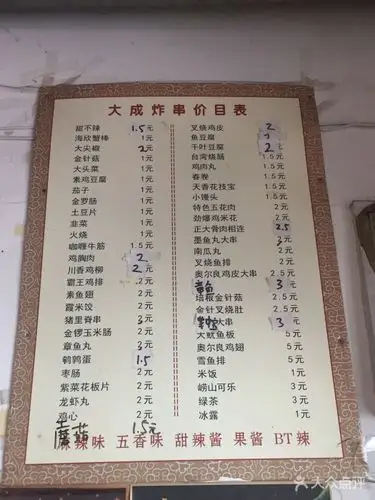 大成炸串价目表
甜不辣 1.5元
海欣蟹棒 1元
大尖椒 2元
金针菇 1元
大头菜 1元
素鸡豆腐 1元
茄子 1元
金罗肠 1元
土豆片 1元
韭菜 1元
火烧 1元
咖喱牛筋 1.5元
鸡胸肉 2
川香鸡柳 2元
霸王鸡排 2元
素鱼翅 2元
霞米饺 2元
猪里脊串 3元
金锣玉米肠 2元
章鱼丸 3元
鹌鹑蛋 1.5
枣肠 2元
紫菜花板片 2元
龙虾丸 2元
鸡心 2元
蘑菇 1.5元
叉烧鸡皮 2
鱼豆腐 2元
千叶豆腐 2
台湾烧肠 1.5元
鸡肉丸 1.5元
春卷 1.5元
天香花枝宝 1.5元
小馒头 1.5元
特色五花肉 2元
劲爆鸡米花 2元
正大骨肉相连 2.5
墨鱼丸大串 3元
南瓜丸 2元
叉烧鱼排 2元
奥尔良鸡皮大串 2.5元
3
培根金针菇 2.5元
金针叉烧肚 2.5元
大串 3
大鱿鱼板 5元
奥尔良鸡翅 5元
雪鱼排 5元
米饭 1元
崂山可乐 3元
绿茶 3元
冰露 1元
麻辣味 五香味 甜辣酱 果酱 BT辣
大众点评